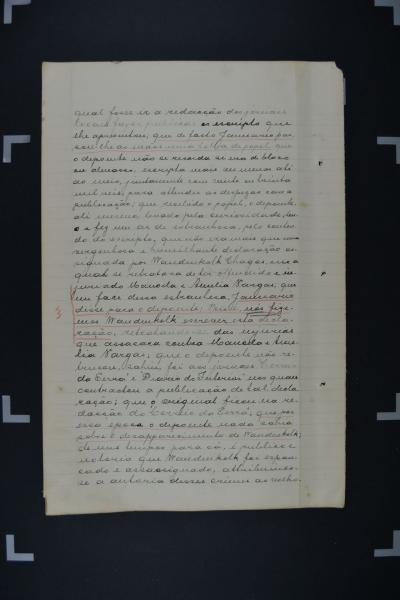 qual fosse ir a redacção dos jornaes
locaes fazer publicar o escripto que
lhe apresentou; que de facto Januario pas
sou-lhe as mãos uma folha de papel, que
o depoente não se recorda se era de bloco
ou almaço, escripta mais ou menos até
ao meio, juntamente com cento e trinta
mil reis, para attender as despezas com a
publicação; que recebido o papel, o depoente,
até mesmo levado pela curiosidade, leu-
o e fez um ar de extranheza, pelo conteu
do do escripto, que não era mais que uma
vergonhosa e humilhante declaração as
signada por Wandenkolk Chagas, na
qual se retratava de ter offendido e in
juriado Manoela e Amelia Vargas; que
em face dessa extranheza, Januario
disse para o depoente: Primo, nós fize-
mos Wandenkolk escrever esta decla
ração, retratando-se das injurias
que assacara contra Manoela e Ame
lia Vargas; que o depoente não re-
trucou, foi aos jornaes Correio
do Serro e Diario do Interior nos quaes
contractou a publicação de tal decla
ração; que o original ficou na re-
dacção do Correio do Serro; que por
essa epoca o depoente nada sabia
sobre o desapparecimento de Wandenkolk;
de uns tempos para cá, é publico e
notorio que Wandenkolk foi espan-
cado e assassinado, attribuindo-
se a autoria desses crimes ao velho